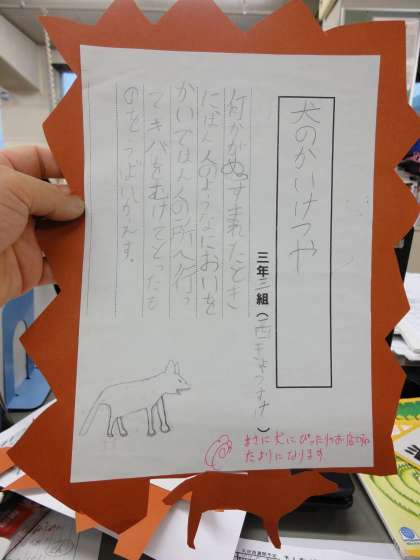 犬のかいけつや
三年三組(西きょうすけ)
何かがぬすまれたとき
にはん人のようなにおいを
かいではん人の所へ行っ
てキバをむけてとったも
のをうばいかえす。
まさに犬にぴったりのお店だね
たよりになります。